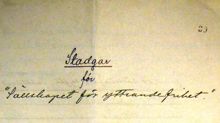 Stadgar
för
"Sällskapet för yttrandefrihet."